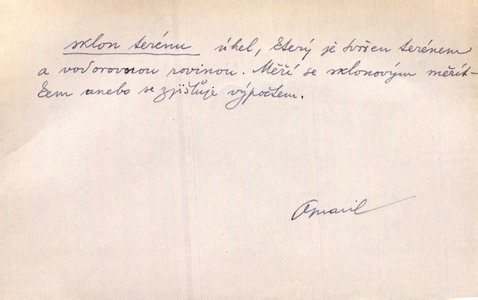 sklon terénu úhel, který je svřen terénem
a vodorovnou rovinou. Měří se sklonovým měřít-
kem anebo se zjišťuje výpočtem.